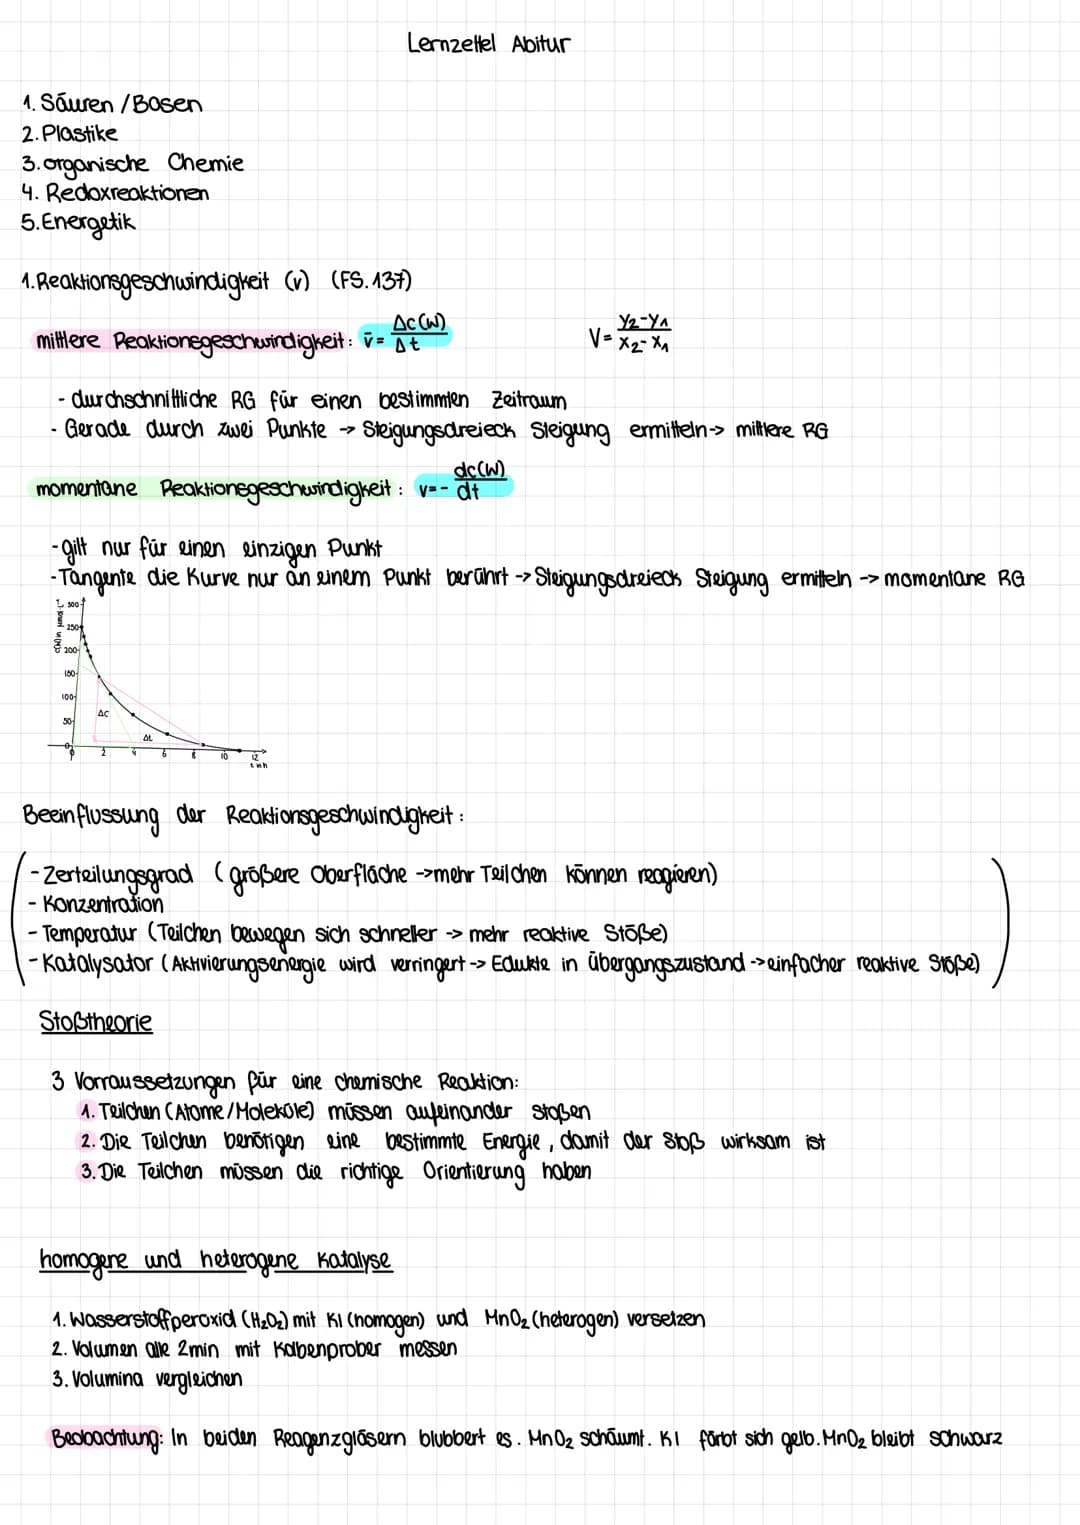 Lernzettel Abitur
1. Säuren / Basen
2. Plastike
3. organische Chemie
4. Redoxreaktionen
5. Energetik
1. Reaktionsgeschwindigkeit (v) (FS. 137)
mittlere Reaktionsgeschwindigkeit: v̄ = Δc(W) / Δt
V = y₂-y₁ / x₂-x₁
- durchschnittliche RG für einen bestimmten Zeitraum
- Gerade durch zwei Punkte -> Steigungsdreieck Steigung ermitteln -> mittlere RG
momentane Reaktionsgeschwindigkeit: v = - dc(W) / dt
- gilt nur für einen einzigen Punkt
- Tangente die Kurve nur an einem Punkt berührt -> Steigungsdreieck Steigung ermitteln -> momentane RG
300
250
200
150
100
50
0
ΔC
Δt
0 2 4 6 8 10 12
t in h
Beeinflussung der Reaktionsgeschwindigkeit:
- Zerteilungsgrad (größere Oberfläche -> mehr Teilchen können reagieren)
- Konzentration
- Temperatur (Teilchen bewegen sich schneller -> mehr reaktive Stöße)
- Katalysator (Aktivierungsenergie wird verringert -> Edukte in übergangszustand -> einfacher reaktive Stöße)
Stoßtheorie
3 Vorraussetzungen für eine chemische Reaktion:
1. Teilchen (Atome/Moleküle) müssen aufeinander stoßen
2. Die Teilchen benötigen eine bestimmte Energie, damit der Stoß wirksam ist
3. Die Teilchen müssen die richtige Orientierung haben
homogene und heterogene Katalyse
1. Wasserstoffperoxid (H₂O₂) mit KI (homogen) und MnO₂ (heterogen) versetzen
2. Volumen alle 2min mit Kolbenprober messen
3. Volumina vergleichen
Beobachtung: In beiden Reagenzgläsern blubbert es. MnO₂ schäumt. KI färbt sich gelb. MnO₂ bleibt schwarz